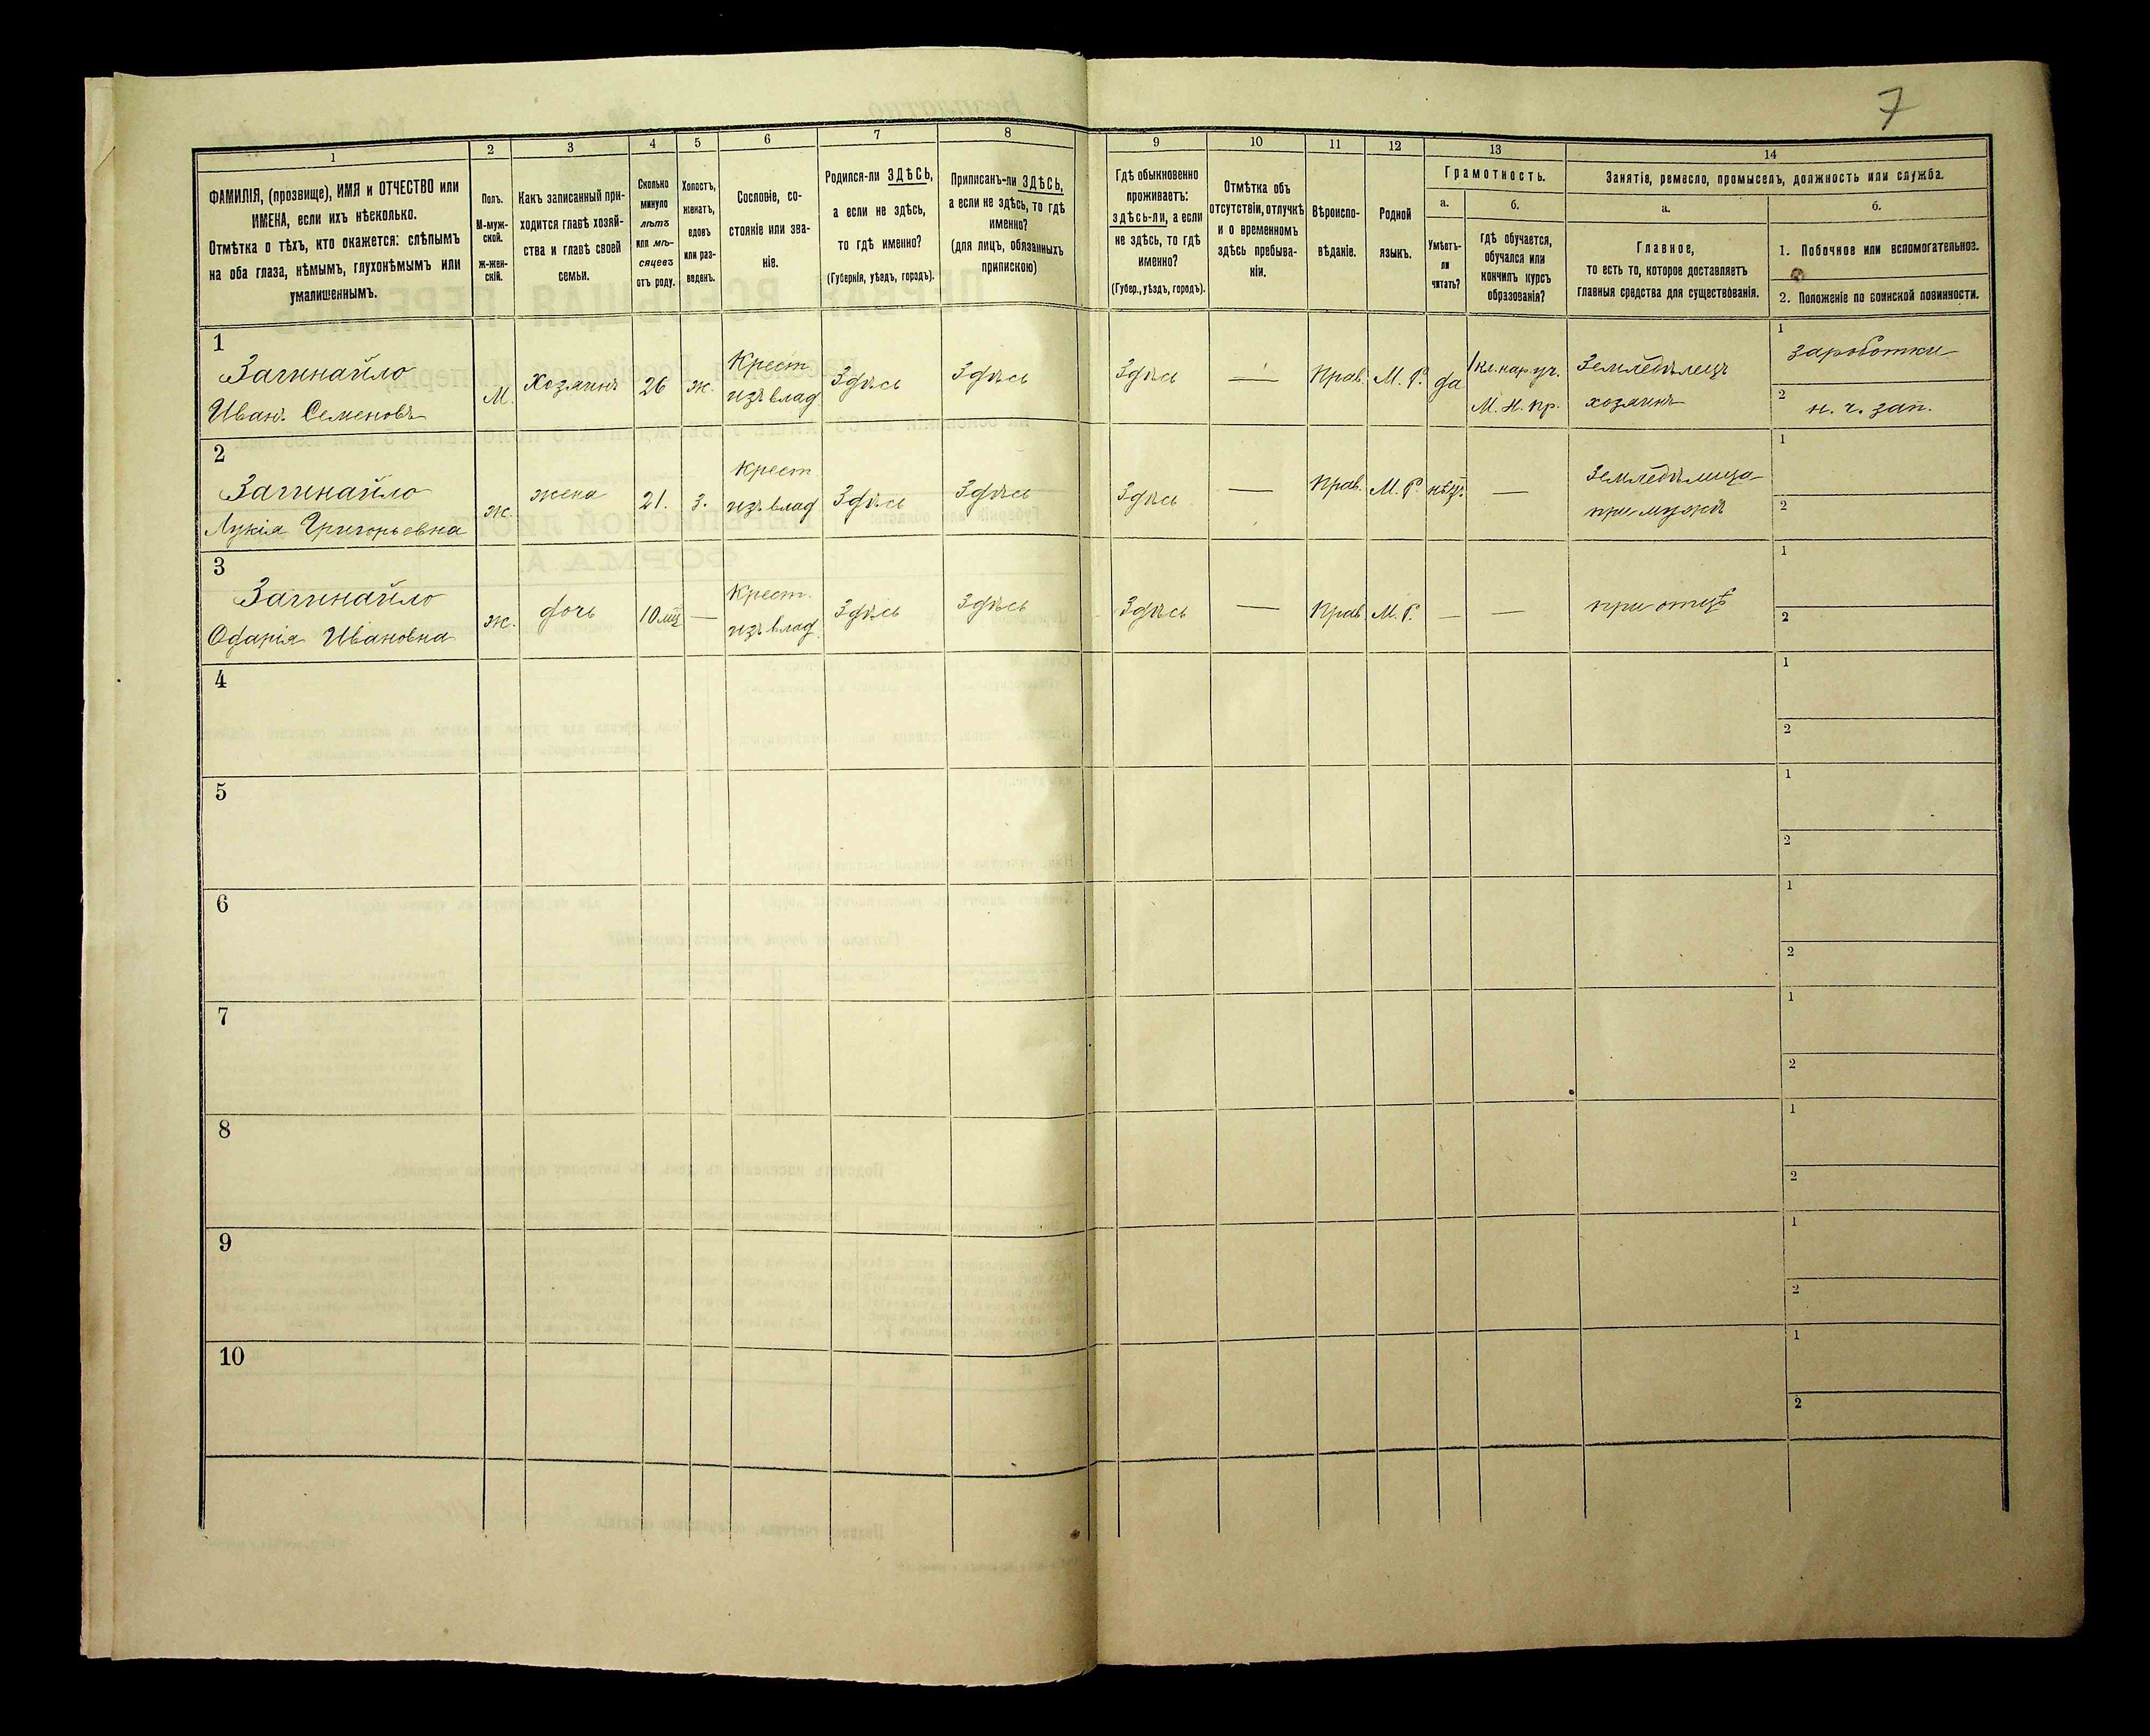 7
1
2
3
4
5
6
7
8
9
10
11
12
13
14
ФАМИЛІЯ, (прозвище), ИМЯ и ОТЧЕСТВО или
ИМЕНА, если ихъ нѣсколько.
Отмѣтка о тѣхъ, кто окажется: слѣпымъ
на оба глаза, нѣмымъ, глухонѣмымъ или
умалишеннымъ.
Полъ.
М-муж-
ской.
ж-жен-
скій.
Какъ записанный при-
ходится главѣ хозяй-
ства и главѣ своей
семьи.
Сколько
минуло
лѣтъ
или мѣ-
сяцевъ
отъ роду.
Холостъ,
женатъ,
вдовъ
или раз-
веденъ.
Сословіе, со-
стояніе или зва-
ніе.
Родился-ли ЗДѢСЬ,
а если не здѣсь,
то гдѣ именно?
(Губернія, уѣздъ, городъ).
Приписанъ-ли ЗДѢСЬ,
а если не здѣсь, то гдѣ
именно?
(для лицъ, обязанныхъ
припискою)
Гдѣ обыкновенно
проживаетъ:
здѣсь-ли, а если
не здѣсь, то гдѣ
именно?
(Губер., уѣздъ, городъ).
Отмѣтка объ
отсутствіи, отлучкѣ
и о временномъ
здѣсь пребыва-
ніи.
Вѣроиспо-
вѣданіе.
Родной
языкъ.
Грамотность.
а.
Умѣетъ-
ли
читать?
б.
гдѣ обучается,
обучался или
кончилъ курсъ
образованія?
Занятіе, ремесло, промыселъ, должность или служба.
а.
Главное,
то есть то, которое доставляетъ
главныя средства для существованія.
б.
1. Побочное или вспомогательное.
2. Положеніе по воинской повинности.
1
Загинайло
Иванъ Семеновъ
М.
Хозяинъ
26
ж.
Крест.
изъ влад.
Здѣсь
Здѣсь
Здѣсь
—
Прав.
М. Р.
да
1 кл. нар. уч.
М. Н. Пр.
Земледѣлецъ
хозяинъ
1
заработки
2
н. ч. зап.
2
Загинайло
Лукія Григорьевна
ж.
жена
21.
З.
Крест.
изъ влад
Здѣсь
Здѣсь
Здѣсь
—
Прав.
М. Р.
нѣтъ
—
Земледѣлица
при мужѣ
1
2
3
Загинайло
Одарія Ивановна
ж.
дочь
10 мц
—
Крест.
изъ влад.
Здѣсь
Здѣсь
Здѣсь
—
Прав.
М. Р.
—
—
при отцѣ
1
2
4
1
2
5
1
2
6
1
2
7
1
2
8
1
2
9
1
2
10
1
2